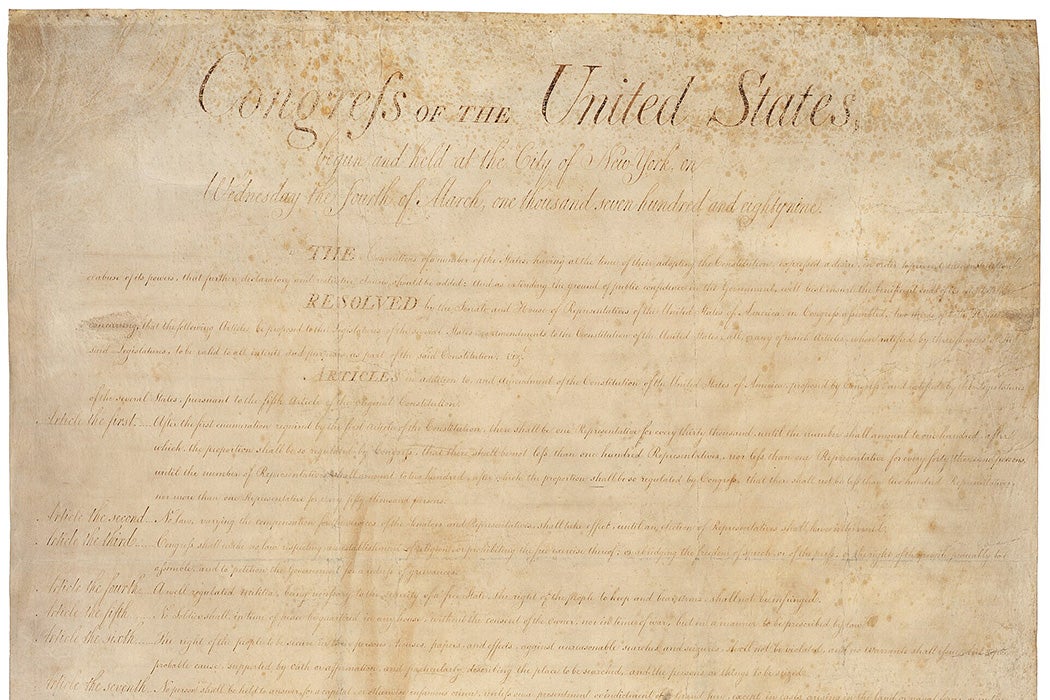 Congreſs OF THE United States,
begun and held at the City of New York, on
Wednesday the fourth of March, one thousand seven hundred and eighty nine.
THE Conventions of a number of the States, having at the time of their adopting the Constitution, expressed a desire, in order to prevent misconstruction
or abuse of its powers, that further declaratory and restrictive clauses should be added: And as extending the ground of public confidence in the Government, will best ensure the beneficent ends of its
RESOLVED by the Senate and House of Representatives of the United States of America, in Congreſs aſsembled, two thirds of both Houses
concurring, that the following Articles be proposed to the Legislatures of the several States, as amendments to the Constitution of the United States, all, or any of which Articles, when ratified by three fourths of the
said Legislatures, to be valid to all intents and purposes, as part of the said Constitution; viz.
ARTICLES in addition to, and Amendment of the Constitution of the United States of America, proposed by Congreſs, and ratified by the Legislatures
of the several States, pursuant to the fifth Article of the original Constitution.
Article the first.... After the first enumeration required by the first Article of the Constitution, there shall be one Representative for every thirty thousand, until the number shall amount to one hundred, after
which, the proportion shall be so regulated by Congreſs, that there shall be not leſs than one hundred Representatives, nor leſs than one Representative for every forty thousand persons,
until the number of Representatives shall amount to two hundred, after which the proportion shall be so regulated by Congreſs, that there shall not be leſs than two hundred Representatives,
nor more than one Representative for every fifty thousand persons.
Article the second... No law, varying the compensation for the services of the Senators and Representatives, shall take effect, until an election of Representatives shall have intervened.
Article the third.... Congreſs shall make no law respecting an establishment of religion, or prohibiting the free exercise thereof; or abridging the freedom of speech, or of the preſs, or the right of the people peaceably to
aſsemble, and to petition the Government for a redreſs of grievances.
Article the fourth... A well regulated Militia, being neceſsary to the security of a free State, the right of the people to keep and bear Arms, shall not be infringed.
Article the fifth.... No Soldier shall, in time of peace be quartered in any house, without the consent of the owner, nor in time of war, but in a manner to be prescribed by law.
Article the sixth.... The right of the people to be secure in their persons, houses, papers, and effects, against unreasonable searches and seizures, shall not be violated, and no Warrants shall iſsue, but upon
probable cause, supported by Oath or affirmation, and particularly describing the place to be searched, and the persons or things to be seized.
Article the seventh... No person shall be held to answer for a capital, or otherwise infamous crime, unleſs on a presentment or indictment of a Grand Jury, except in cases arising in the land